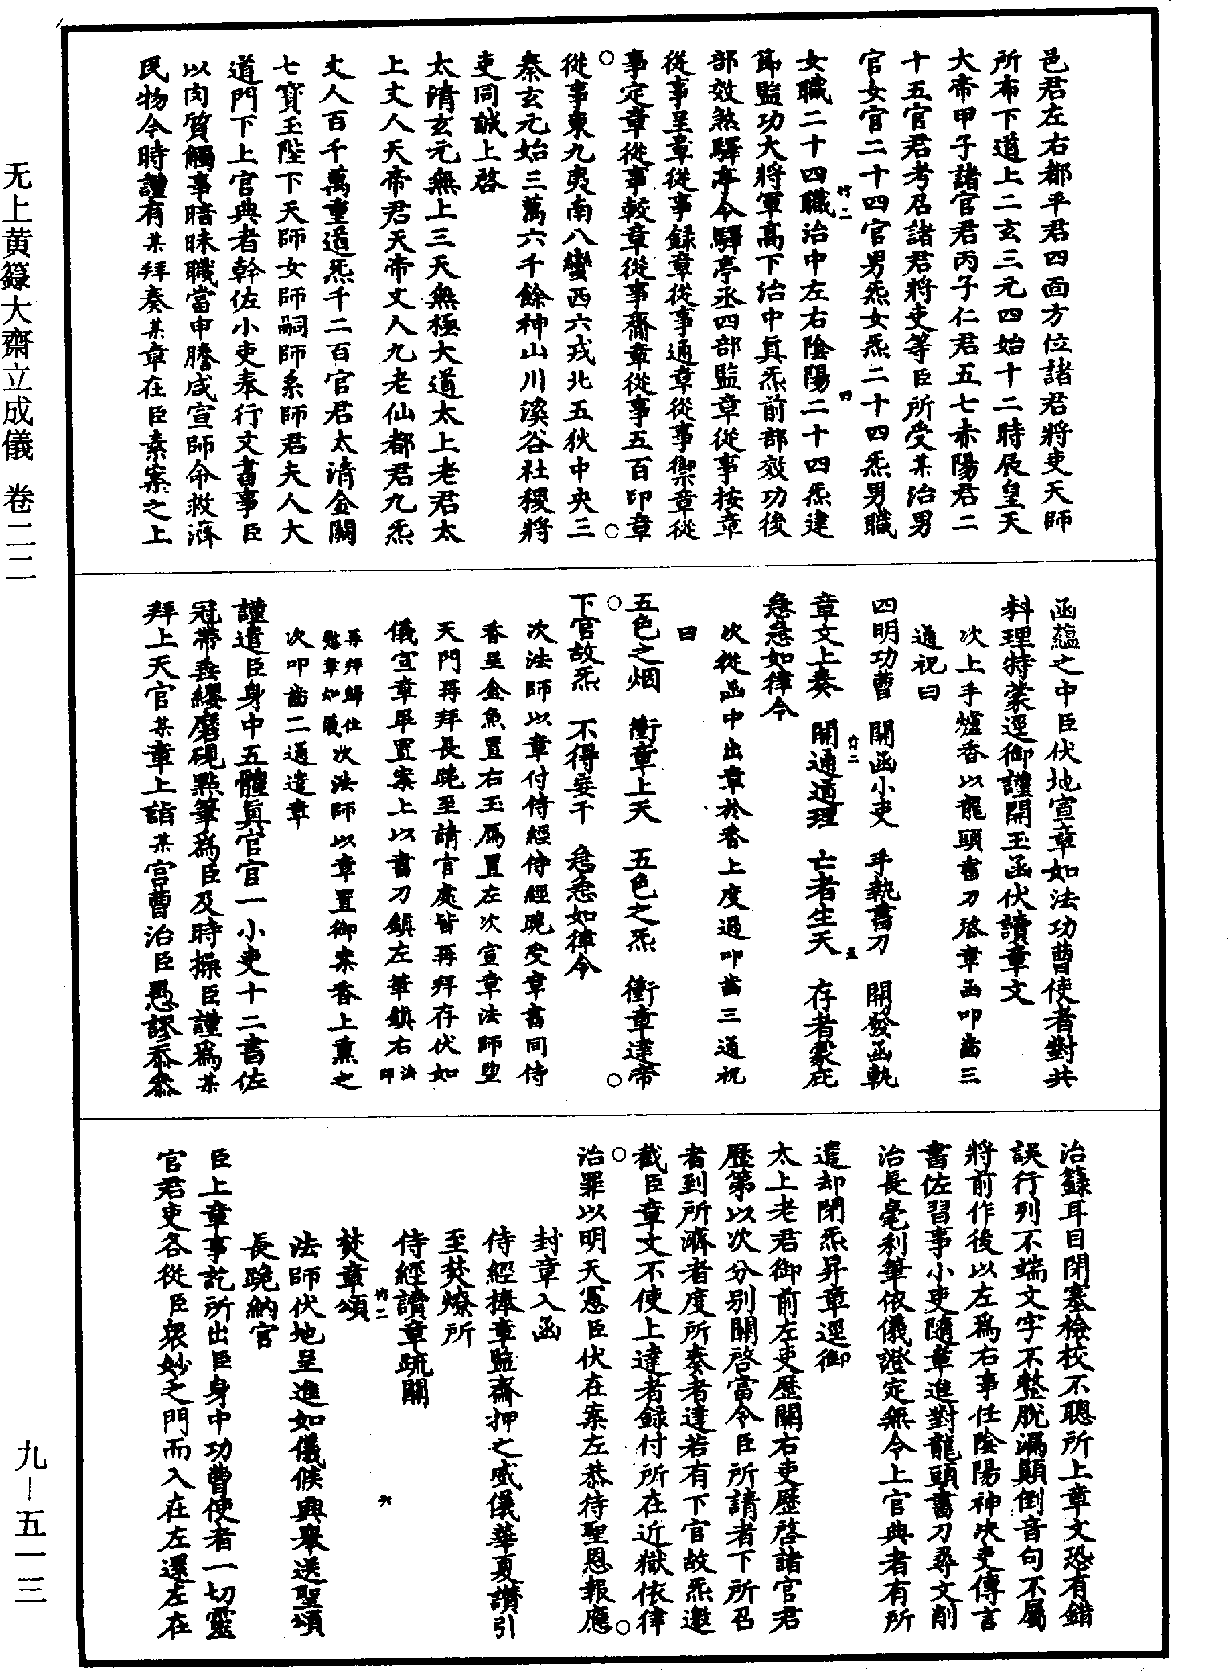 邑君左右都平君四面方位諸君將吏天師
所布下道上二玄三元四始十二時辰皇天
大帝甲子諸官君丙子仁君五七赤陽君二
十五官君考召諸君將吏等臣所受某治男
官女官二十四官男炁女炁二十四炁男職
女職二十四職治中左右陰陽二十四炁建
節監功大將軍高下治中真炁前部效功後
部效煞驛亭令驛亭丞四部監章從事按章
從事呈章從事録章從事通章從事禦章從
事定章從事較章從事齋章從事五百印章
從事東九夷南八蠻西六戎北五狄中央三
秦玄元始三萬六千餘神山川溪谷社稷將
吏同誠上啓
太清玄元無上三天無極大道太上老君太
上丈人天帝君天帝丈人九老仙都君九炁
丈人百千萬重道炁千二百官君太清金闕
七寶玉陛下天師女師嗣師系師君夫人大
道門下上官典者幹佐小吏奉行文書事臣
以肉質觸事暗昧職當申謄咸宣師命救濟
民物令時謹有某拜奏某章在臣素案之上
函蘊之中臣伏地宣章如法功曹使者對共
料理特蒙逕御謹開玉函伏讀章文
次上手爐香以龍頭書刀啓章函叩齒三
通祝曰
四明功曹　開函小吏　手執書刀　開發函執
章文上奏　開通道理　亡者生天　存者蒙庇
急急如律令
次從函中出章於香上度過叩齒三通祝
曰
五色之烟　衝章上天　五色之炁　衝章達帝
下官故炁　不得妄干　急急如律令
次法師以章付侍經侍經跪受章書同侍
香呈金魚置右玉鴈置左次宣章法師望
天門再拜長跪至請官處皆再拜存伏如
儀宣章畢置案上以書刀鎮左筆鎮右法師
再拜歸位
懸章如儀次法師以章置御案香上熏之
次叩齒二通遣章
謹遣臣身中五體真官官一小吏十二書佐
冠帶垂纓磨硯點筆為臣及時操臣謹為某
拜上天官某章上詣某宮曹治臣愚謬忝參
治籙耳目閉塞檢校不聰所上章文恐有錯
誤行列不端文字不整脫漏顛倒音句不屬
將前作後以左為右事任陰陽神決吏傳言
書佐習事小吏隨章進對龍頭書刀尋文削
治長毫利筆依儀證定無令上官典者有所
遣却閉炁昇章逕御
太上老君御前左吏歷關右吏歷啓諸官君
歷第以次分別關啓當令臣所請者下所召
者到所濟者度所奏者達若有下官故炁邀
截臣章文不使上達者録付所在近獄依律
治罪以明天憲臣伏在案左恭待聖恩報應
封章入函
侍經捧章監齋押之威儀華夏讚引
至焚燎所
侍經讀章疏關
焚章頌
法師伏地呈進如儀候興舉送聖頌
長跪納官
臣上章事訖所出臣身中功曹使者一切靈
官君吏各從臣衆妙之門而入在左還左在
无上黄籙大齋立成儀　卷二二
九—五一三